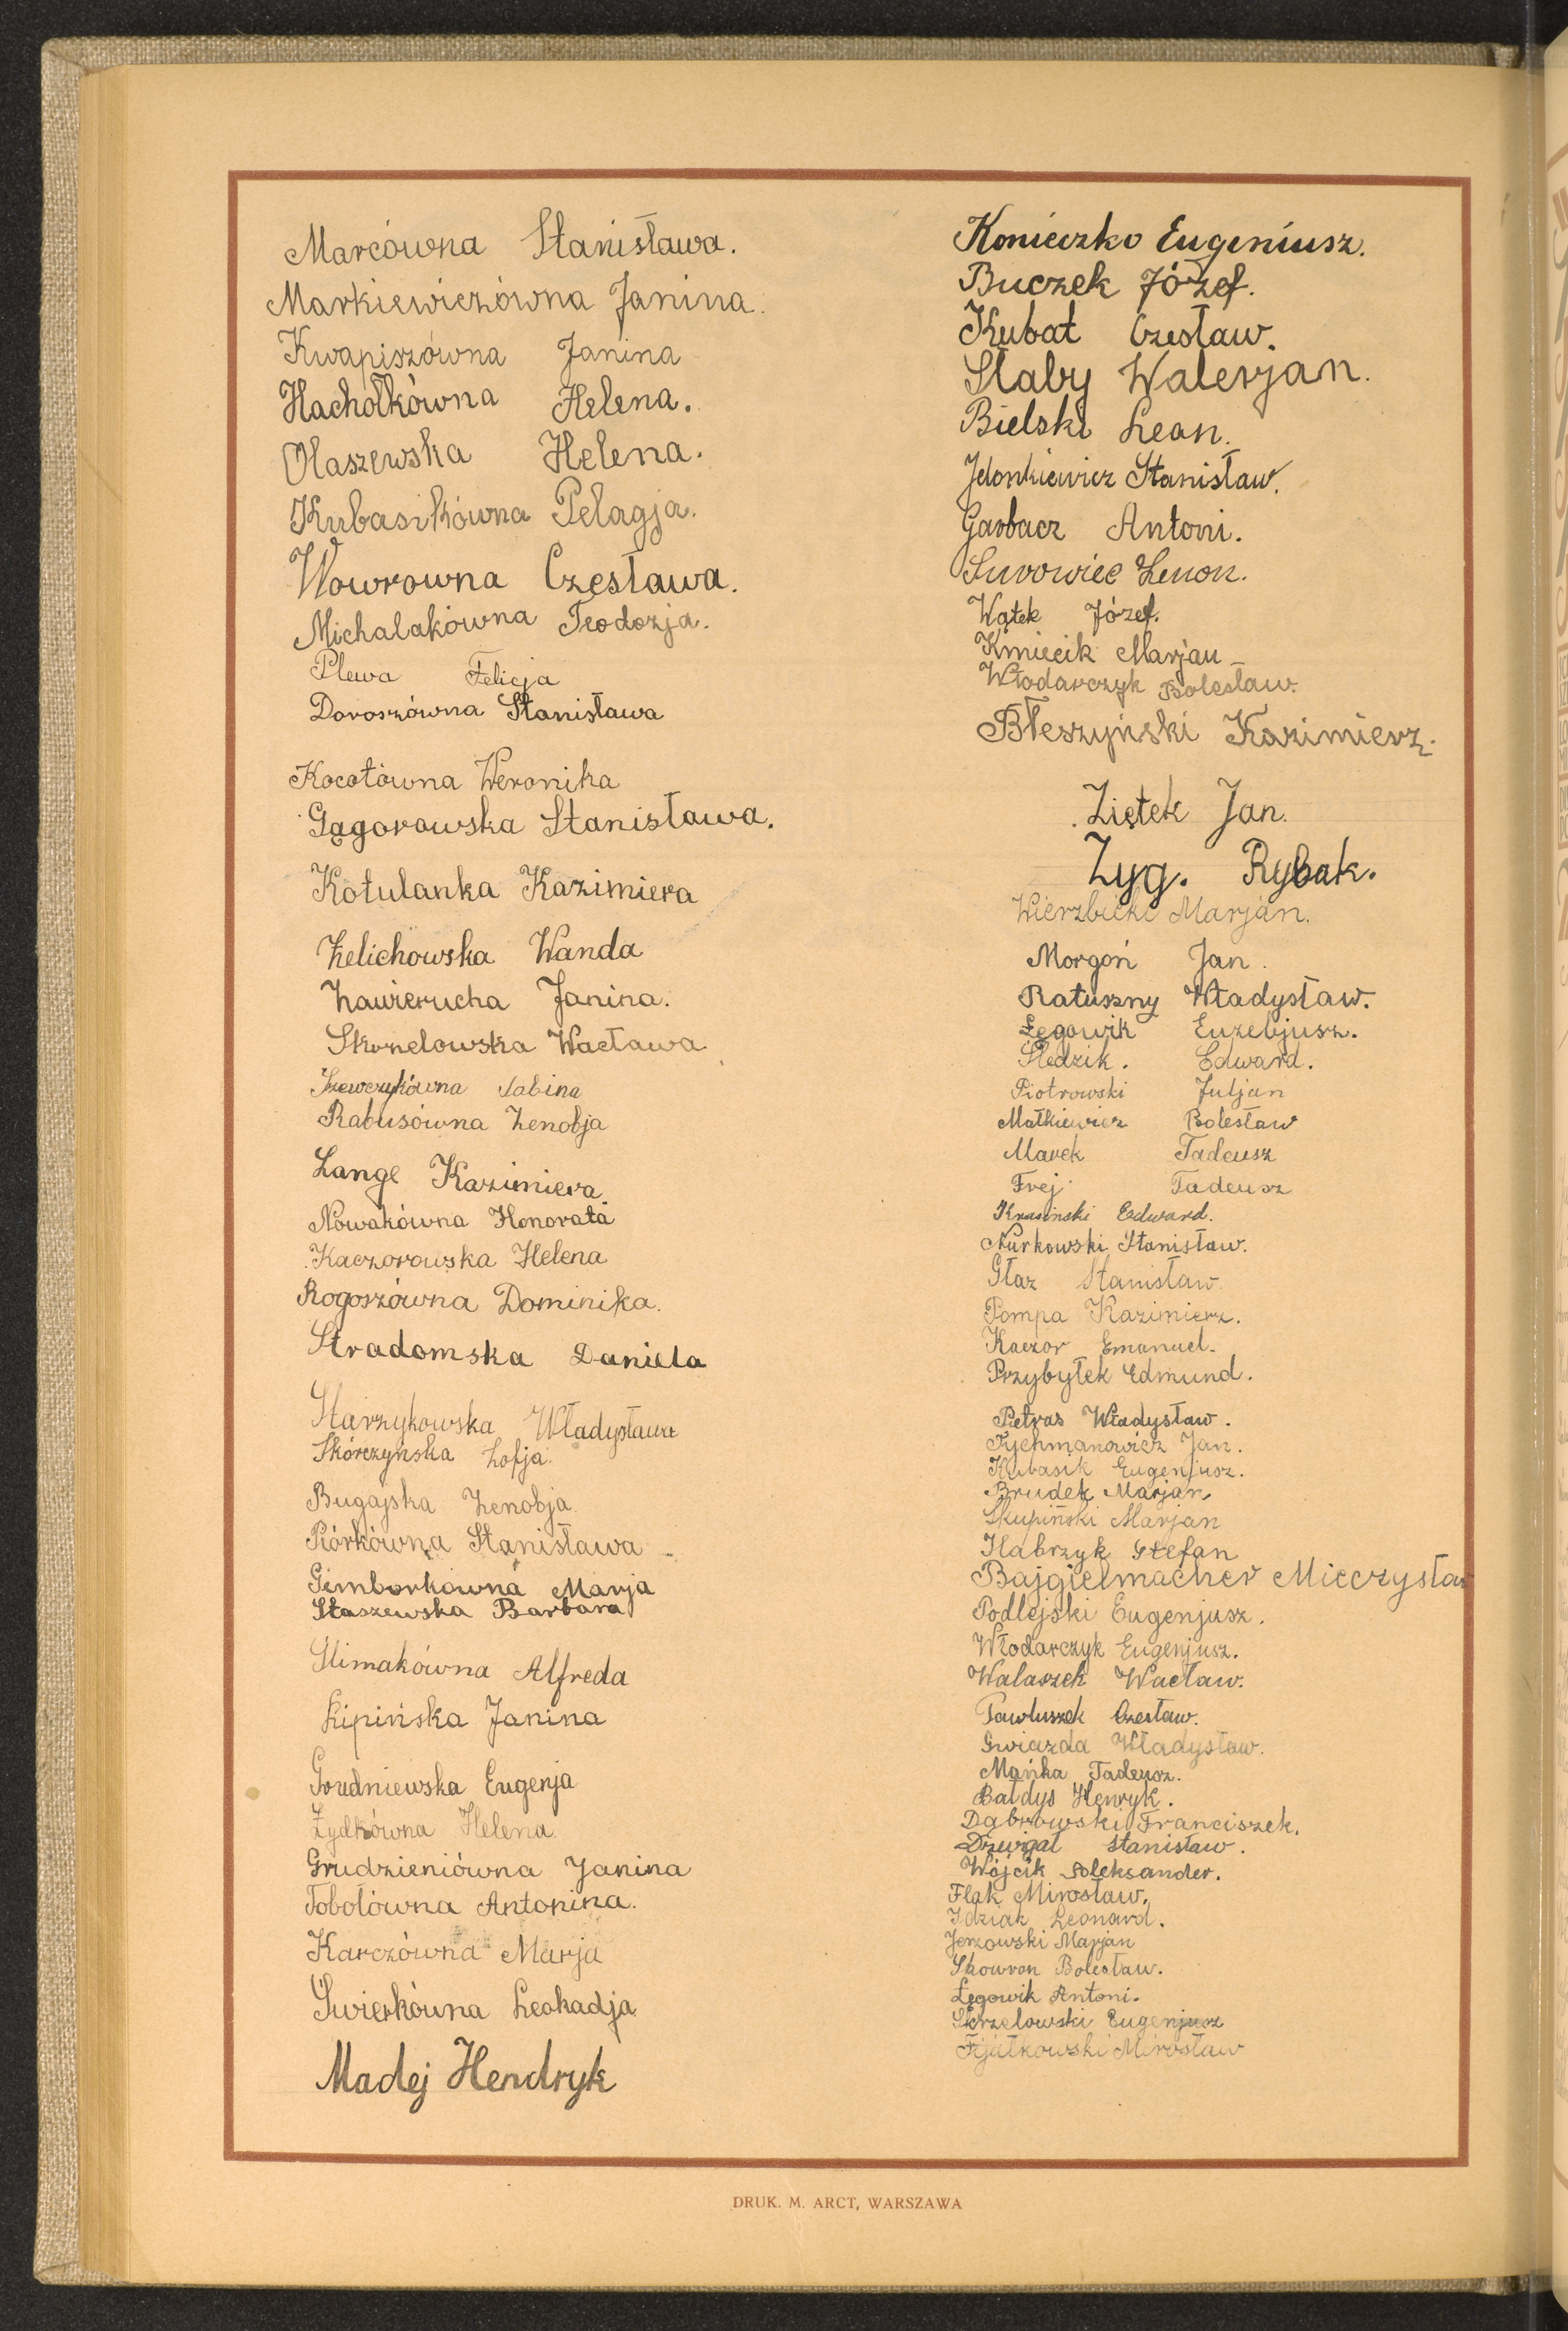 Marcówna Stanisława.
Markiewiczówna Janina.
Kwapiszówna Janina
Hachołkówna Helena.
Olaszewska Helena.
Kubasikówna Pelagja.
Wowrowna Czesława.
Michalakówna Teodozja.
Plewa Felicja
Doroszówna Stanisława
Kocotówna Weronika
Gągorowska Stanisława.
Kotulanka Kazimiera
Zelichowska Wanda
Zawierucha Janina.
Skonelowska Wacława
Szewczykówna Sabina
Rabusówna Zenobja
Lange Kazimiera
Nowakówna Honorata
Kaczorowska Helena
Rogoszówna Dominika.
Stradomska Daniela
Starzykowska Władysława
Skórczyńska Zofja.
Bugajska Zenobja
Piórkówna Stanisława
Gimborkówna Marja
Staszewska Barbara
Slimakówna Alfreda
Lipińska Janina
Grudniewska Eugenja
Żydkówna Helena.
Grudzieniówna Janina
Tobołówna Antonina.
Karczówna Marja
Świerkówna Leokadja
Madej Hendryk
Konieczko Eugeniusz.
Buczek Józef.
Kubat Czesław.
Słaby Walerjan.
Bielski Leon.
Jelonkiewicz Stanisław.
Garbacz Antoni.
Surowiec Zenon.
Wątek Józef.
Kmiecik Marjan
Włodarczyk Bolesław.
Błeszyński Kazimierz.
Ziętek Jan.
Zyg. Rybak.
Wierzbicki Marjan.
Morgoń Jan.
Ratuszny Władysław.
Łęgowik Euzebjusz.
Śledzik. Edward.
Piotrowski Juljan
Małkiewicz Bolesław
Marek Tadeusz
Frej Tadeusz
Krasinski Edward.
Nurkowski Stanisław.
Głaz Stanisław.
Pompa Kazimierz.
Kaczor Emanuel.
Przybyłek Edmund.
Pietras Władysław.
Tychmanowicz Jan.
Kubasik Eugenjusz.
Brudek Marjan
Skupiński Marjan
Habrzyk Stefan
Bajgielmacher Mieczysław
Podlejski Eugenjusz.
Włodarczyk Eugenjusz.
Walaszek Wacław.
Pawluszek Czesław.
Gwiazda Władysław.
Mańka Tadeusz.
Bałdys Henryk.
Dąbrowski Franciszek.
Dźwigał Stanisław.
Wójcik Aleksander.
Flak Mirosław.
Idziak Leonard.
Jerzowski Marjan
Skowron Bolesław.
Łęgowik Antoni.
Skrzelowski Eugenjusz
Fijałkowski Mirosław
DRUK. M. ARCT, WARSZAWA